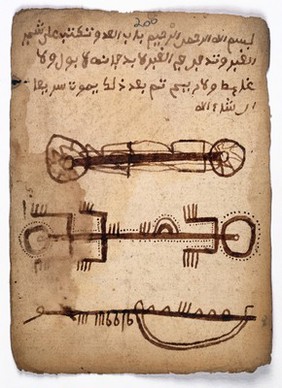 بسم الله الرحمن الرحيم باب العدو تكتب على
القبر وتدفن في القبر لا بول ولا
غايط ولا ريح ثم بعد ذلك يموت سريعا
ان شاء الله